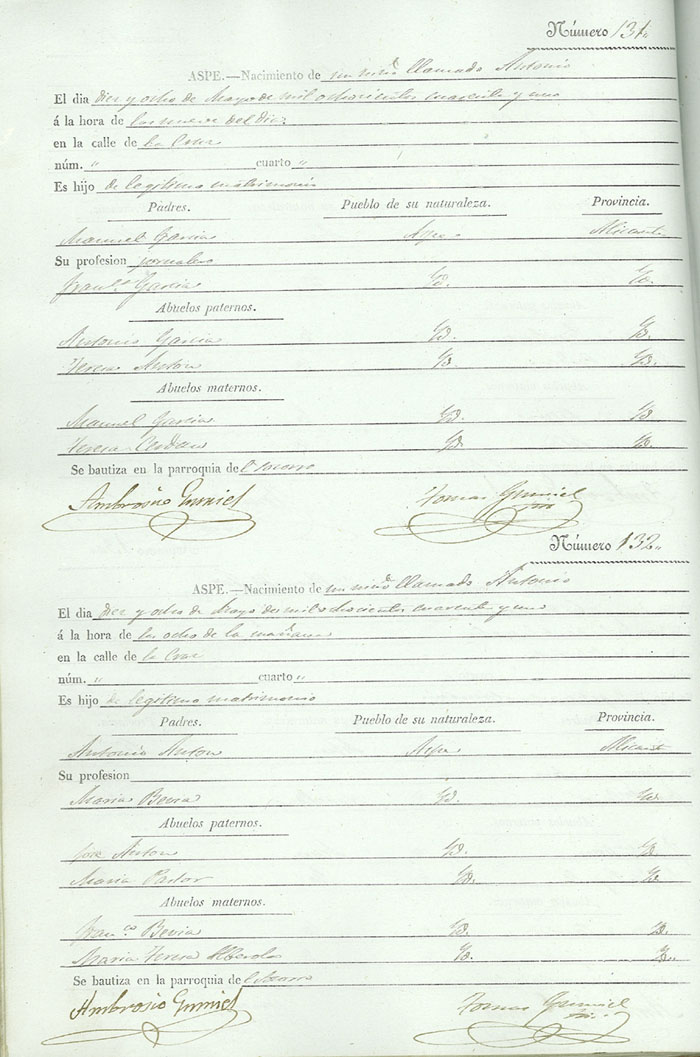 Número 131"
ASPE.—Nacimiento de un niño llamado Antonio
El dia diez y ocho de Mayo de mil ochocientos cuarenta y uno
á la hora de las nueve del dia
en la calle de la Cruz
núm. " cuarto "
Es hijo de legitimo matrimonio
Padres. Pueblo de su naturaleza. Provincia.
Manuel Garcia Aspe Alicante
Su profesion jornalero
Franca. Garcia Yd. Yd.
Abuelos paternos.
Antonio Garcia Yd. Yd.
Teresa Anton Yd. Yd.
Abuelos maternos.
Manuel Garcia Yd. Yd.
Teresa Cerdan Yd. Yd.
Se bautiza en la parroquia del Socorro
Ambrosio Gumiel Tomas Gumiel
Número 132"
ASPE.—Nacimiento de un niño llamado Antonio
El dia diez y ocho de Mayo de mil ochocientos cuarenta y uno
á la hora de las ocho de la mañana
en la calle de la Cruz
núm. " cuarto "
Es hijo de legitimo matrimonio
Padres. Pueblo de su naturaleza. Provincia.
Antonio Anton Aspe Alicante
Su profesion
Maria Bevia Yd. Yd.
Abuelos paternos.
Jose Anton Yd. Yd.
Maria Pastor Yd. Yd.
Abuelos maternos.
Franco. Bevia Yd. Yd.
Maria Teresa Alberola Yd. Yd.
Se bautiza en la parroquia del Socorro
Ambrosio Gumiel Tomas Gumiel